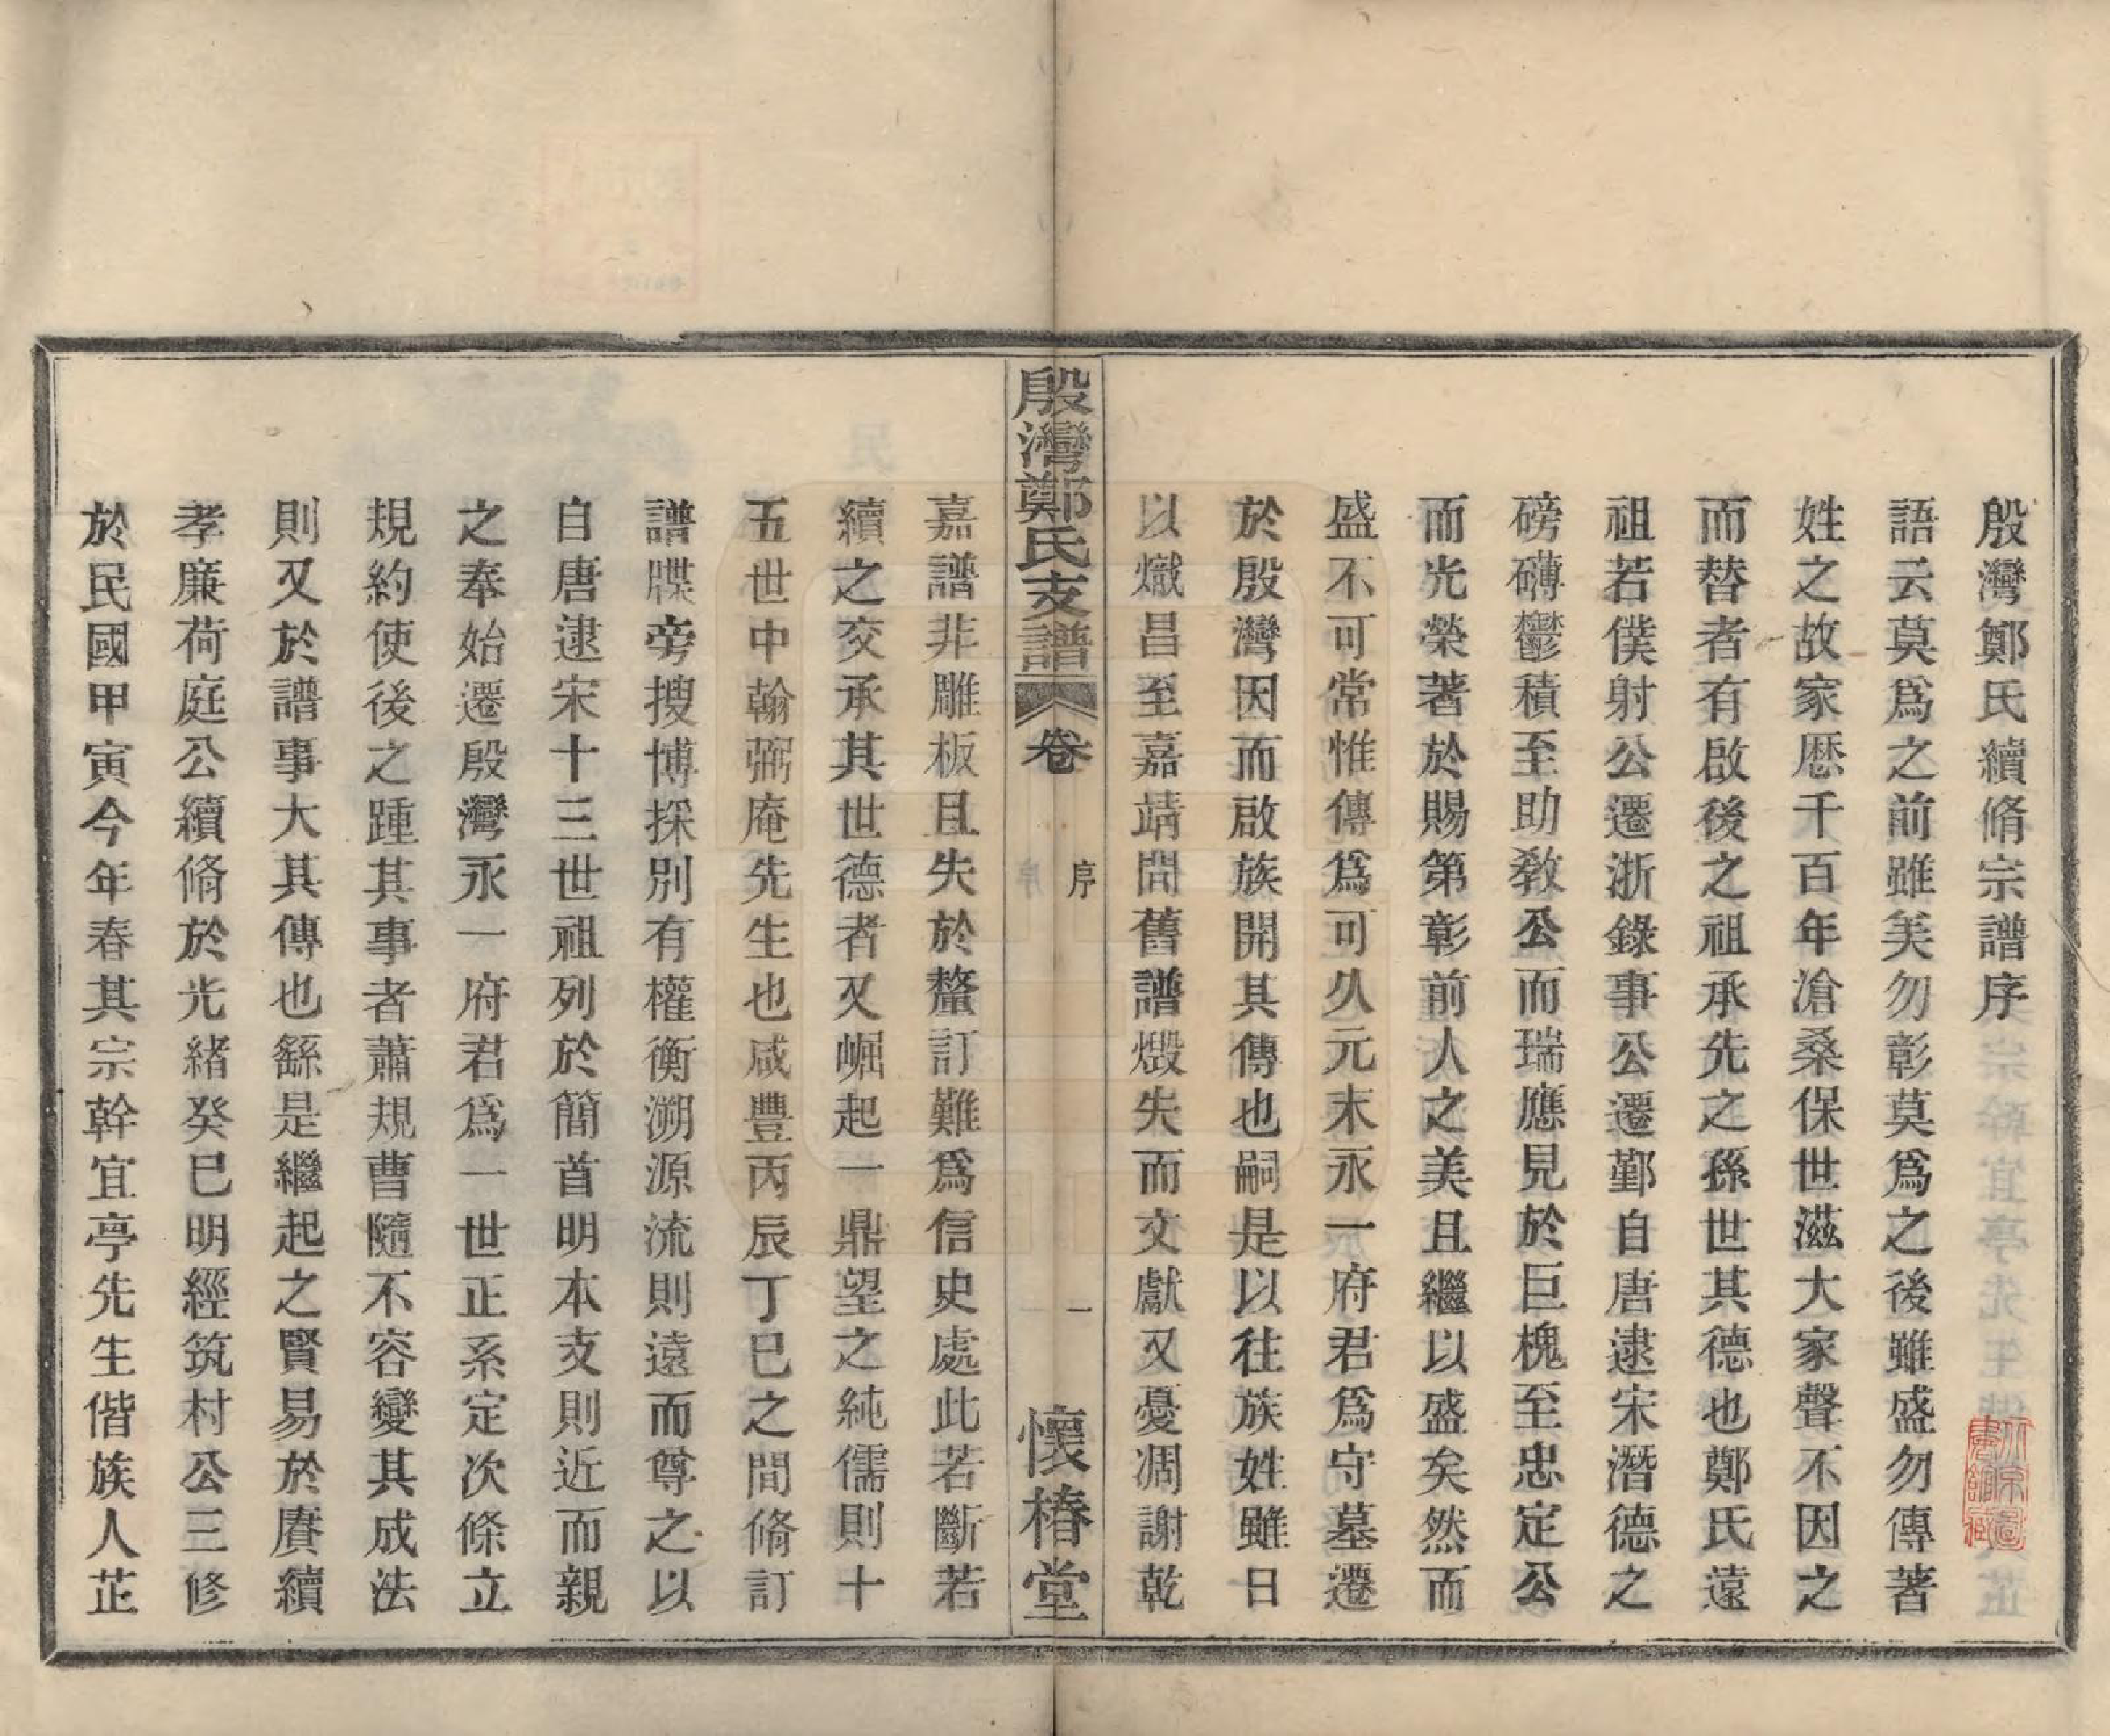 殷灣鄭氏續脩宗譜序
語云莫爲之前雖美勿彰莫爲之後雖盛勿傳著
姓之故家歷千百年滄桑保世滋大家聲不因之
而替者有啟後之祖承先之孫世其德也鄭氏遠
祖若僕射公遷浙錄事公遷鄞自唐逮宋潛德之
磅礴鬱積至助教公而瑞應見於巨槐至忠定公
而光榮著於賜第彰前人之美且繼以盛矣然而
盛不可常惟傳爲可久元末永一府君爲守墓遷
於殷灣因而啟族開其傳也嗣是以往族姓雖日
以熾昌至嘉靖間舊譜燬失而文獻又憂凋謝乾
殷灣鄭氏支譜 卷 序 一 懷椿堂
嘉譜非雕板且失於釐訂難爲信史處此若斷若
續之交承其世德者又崛起一鼎望之純儒則十
五世中翰弼庵先生也咸豐丙辰丁巳之間脩訂
譜牒旁搜博採別有權衡溯源流則遠而尊之以
自唐逮宋十三世祖列於簡首明本支則近而親
之奉始遷殷灣永一府君爲一世正系定次條立
規約使後之踵其事者蕭規曹隨不容變其成法
則又於譜事大其傳也繇是繼起之賢易於賡續
孝廉荷庭公續脩於光緒癸巳明經筑村公三修
於民國甲寅今年春其宗幹宜亭先生偕族人芷